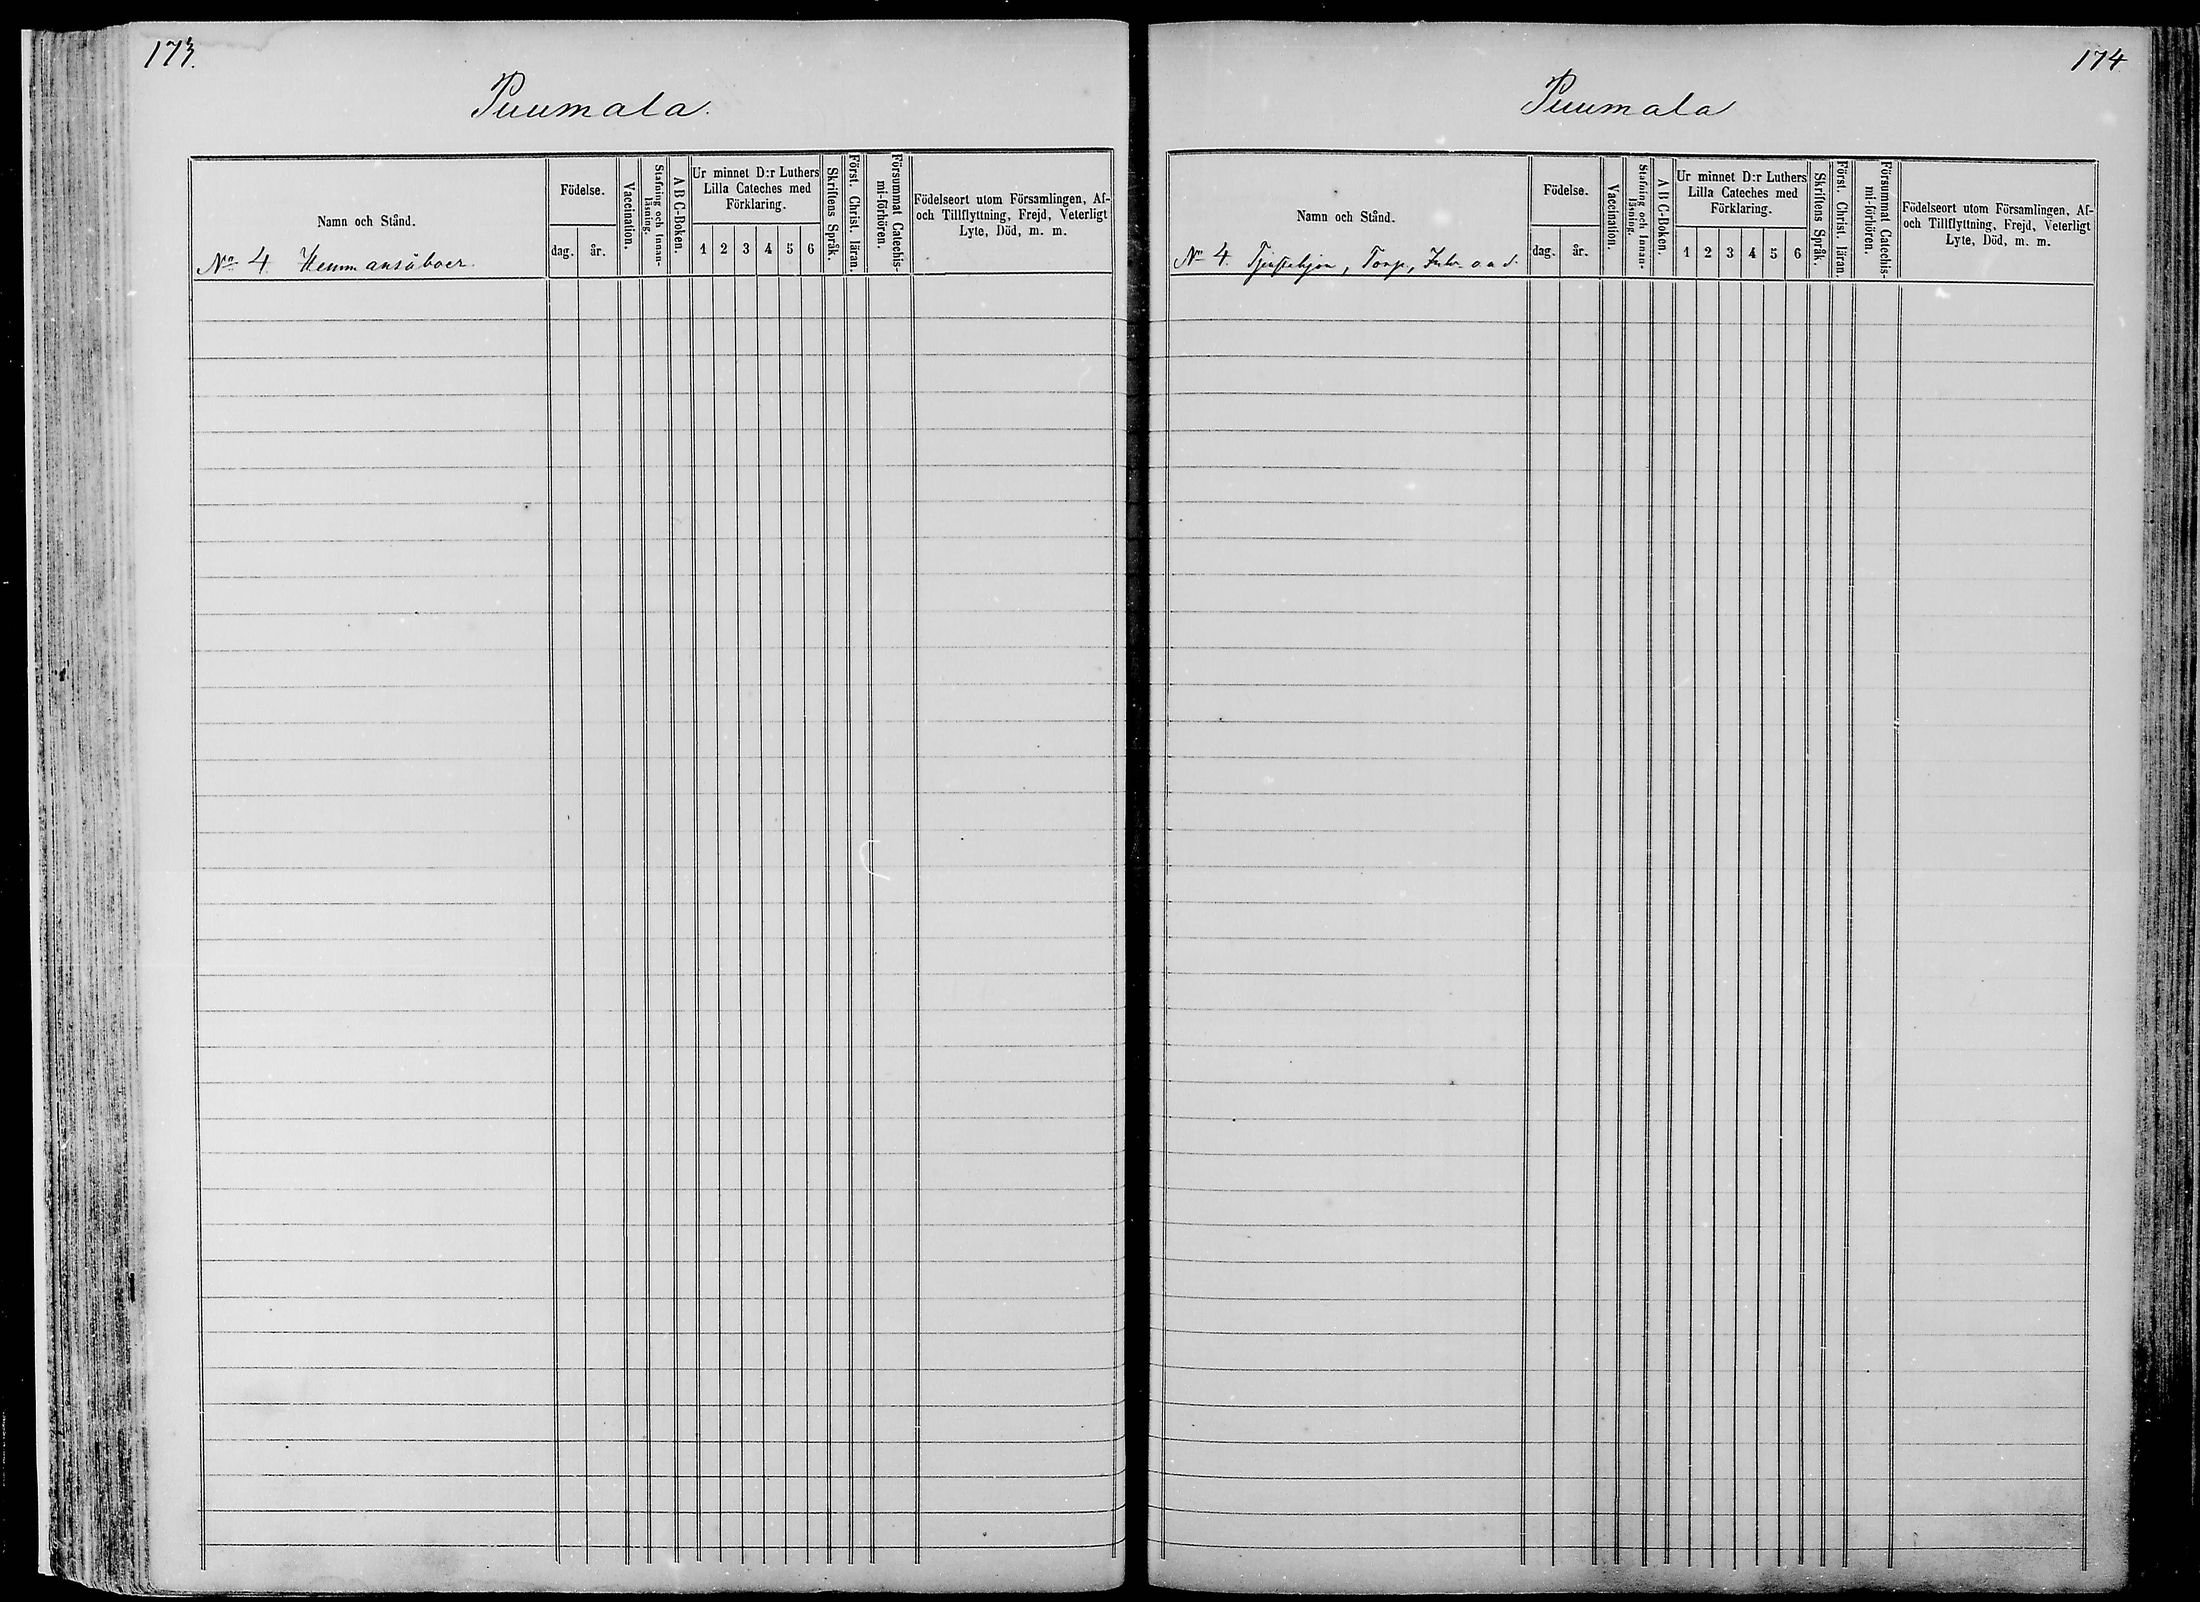 173.
Puumala.
Namn och Stånd.
No 4. Hemmansåboer.
Födelse.
dag.
år.
Vaccination.
Stafning och Innan-
läsning.
A B C-Boken.
Ur minnet D:r Luthers
Lilla Cateches med
Förklaring.
1 2 3 4 5 6
Skriftens Språk.
Först. Christ. läran.
Försummat Catechis-
mi-förhören.
Födelseort utom Församlingen, Af-
och Tillflyttning, Frejd, Veterligt
Lyte, Död, m. m.
174
Puumala
Namn och Stånd.
No 4. Tjenstehjon, Torp, Inh. o. a. d.
Födelse.
dag.
år.
Vaccination.
Stafning och Innan-
läsning.
A B C-Boken.
Ur minnet D:r Luthers
Lilla Cateches med
Förklaring.
1 2 3 4 5 6
Skriftens Språk.
Först. Christ. läran.
Försummat Catechis-
mi-förhören.
Födelseort utom Församlingen, Af-
och Tillflyttning, Frejd, Veterligt
Lyte, Död, m. m.